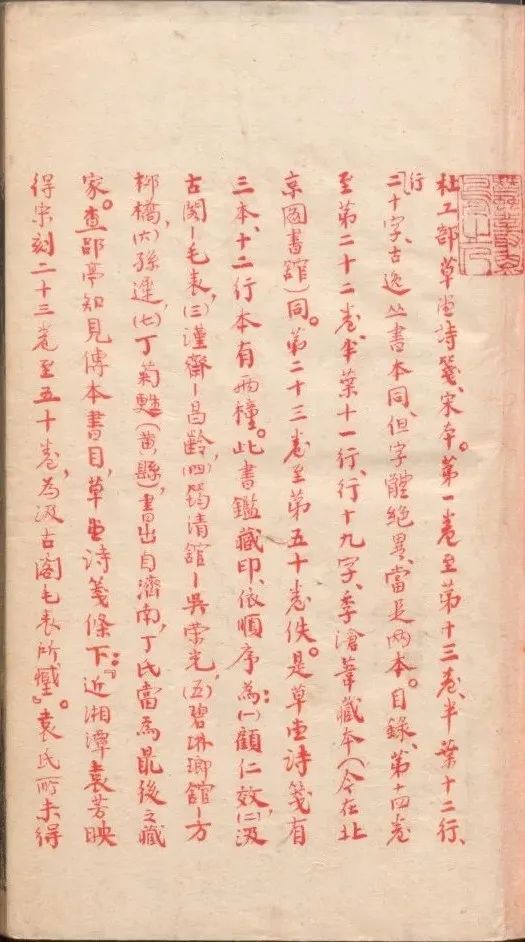 杜工部草堂詩箋、宋本。第一卷至第十三卷、半葉十二行、
行二十字、古逸丛書本同、但字體絶異、當是两本。目錄、第十四卷
至第二十二卷、半葉十一行、行十九字、季滄葦藏本(今在北
京圖書館)同。第二十三卷至第五十卷佚。是草堂詩箋有
三本、十二行本有两種。此書鑑藏印、依順序為:(一)顧仁效,(二)汲
古閣—毛表,(三)謹齋—昌齡,(四)筠清館—吳榮光,(五)碧琳瑯館—方
柳橋,(六)孫楗,(七)丁菊甦(黄縣)書出自濟南,丁氏當為最後之藏
家。查郘亭知見傳本書目,草堂詩箋條下:『近湘潭袁芳暎
得宋刻二十三卷至五十卷,為汲古閣毛表所藏』。袁氏所未得